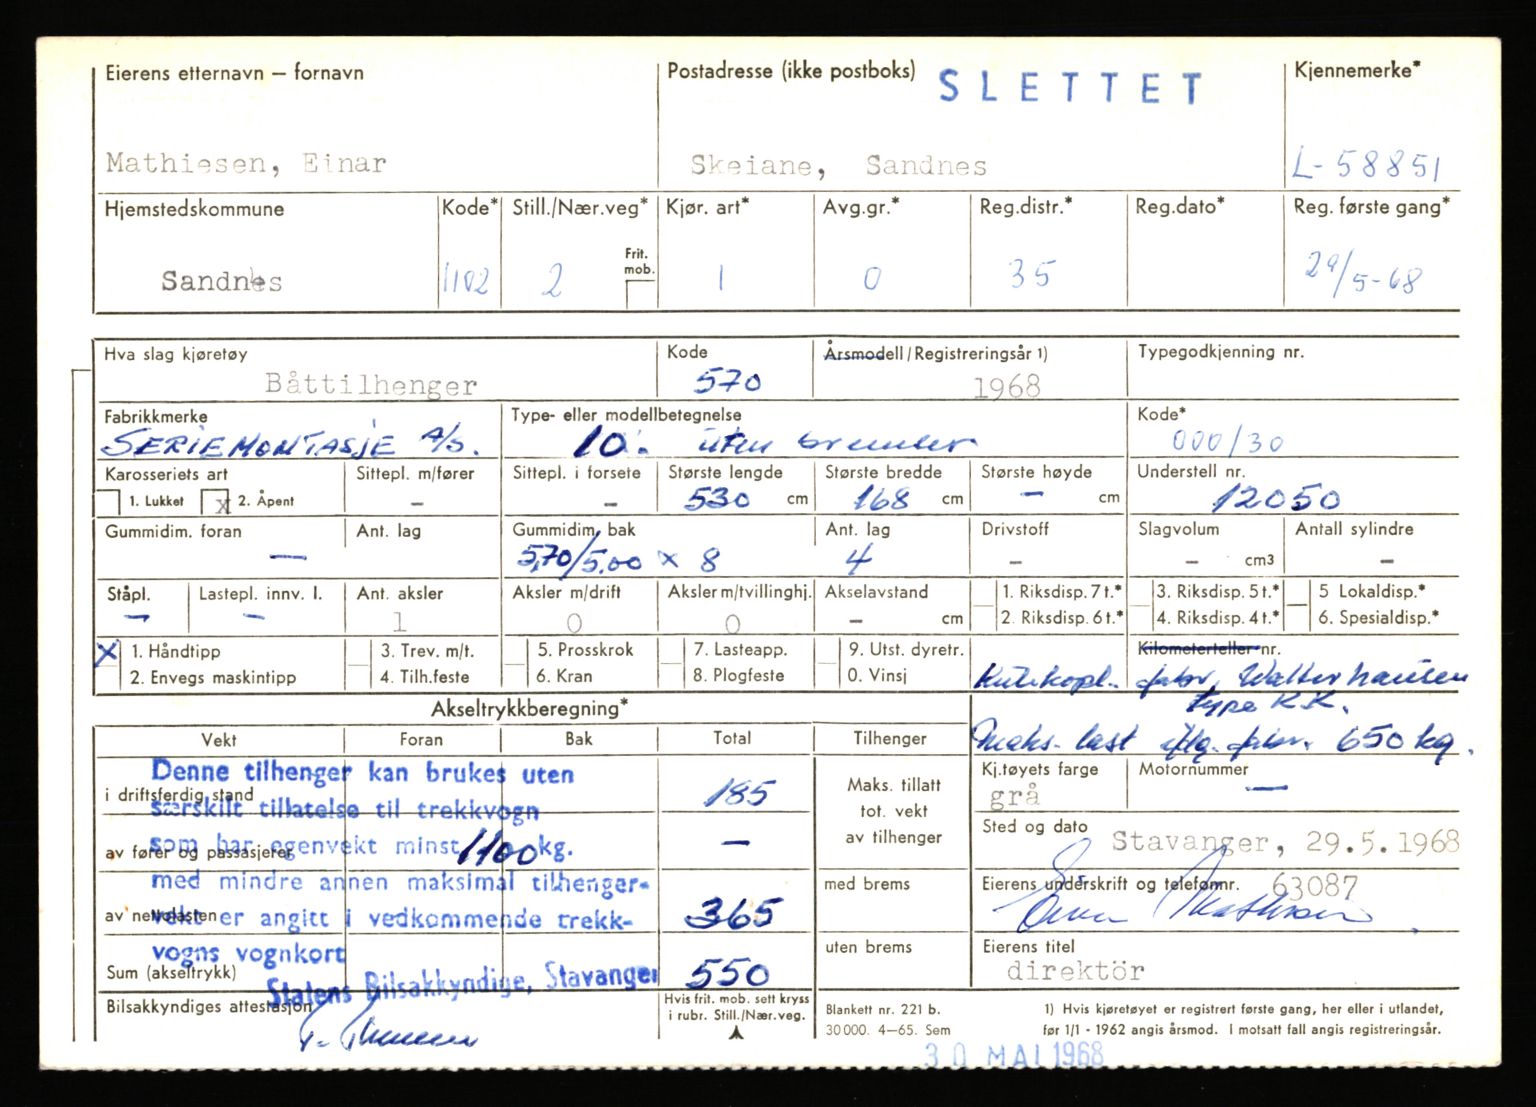 Eierens etternavn – fornavn
Postadresse (ikke postboks)
SLETTET
Kjennemerke*
Mathiesen, Einar
Skeiane, Sandnes
L-58851
Hjemstedskommune
Kode*
Still./Nær.veg*
Kjør. art*
Avg.gr.*
Reg.distr.*
Reg.dato*
Reg. første gang*
Frit. mob.
Sandnes
1102
2
1
0
35
29/5-68
Hva slag kjøretøy
Kode
Årsmodell/Registreringsår 1)
Typegodkjenning nr.
Båttilhenger
570
1968
Fabrikkmerke
Type- eller modellbetegnelse
Kode*
SERIEMONTASJE A/S.
10. uten bremser
000/30
Karosseriets art
Sittepl. m/fører
Sittepl. i forsete
Største lengde
Største bredde
Største høyde
Understell nr.
1. Lukket x 2. Åpent
–
–
530 cm
168 cm
– cm
12050
Gummidim. foran
Ant. lag
Gummidim. bak
Ant. lag
Drivstoff
Slagvolum
Antall sylindre
—
5,70/5.00 x 8
4
–
– cm3
–
Ståpl.
Lastepl. innv. l.
Ant. aksler
Aksler m/drift
Aksler m/tvillinghj.
Akselavstand
1. Riksdisp. 7 t.*
3. Riksdisp. 5 t.*
5 Lokaldisp.*
–
–
1
0
0
– cm
2. Riksdisp. 6 t.*
4. Riksdisp. 4 t.*
6. Spesialdisp.*
X 1. Håndtipp
3. Trev. m/t.
5. Prosskrok
7. Lasteapp.
9. Utst. dyretr.
Kilometerteller nr.
2. Envegs maskintipp
4. Tilh.feste
6. Kran
8. Plogfeste
0. Vinsj
Kulekopl. fabr. Walterhausen
type K.K.
Maks. last iflg. fabr. 650 kg.
Akseltrykkberegning*
Vekt
Foran
Bak
Total
Tilhenger
Denne tilhenger kan brukes uten
særskilt tillatelse til trekkvogn
som har egenvekt minst 1100 kg.
med mindre annen maksimal tilhenger-
vekt er angitt i vedkommende trekk-
vogns vognkort
Statens Bilsakkyndige, Stavanger
i driftsferdig stand
185
Maks. tillatt
tot. vekt
av tilhenger
Kj.tøyets farge
Motornummer
grå
—
av fører og passasjerer
–
Sted og dato
Stavanger, 29.5.1968
av nettolasten
365
med brems
Eierens underskrift og telefonnr.
63087
Einar Mathiesen
Sum (akseltrykk)
550
uten brems
Eierens titel
direktör
Bilsakkyndiges attestasjon
Hvis frit. mob. sett kryss
i rubr. Still./Nær.veg.
Blankett nr. 221 b.
30 000. 4–65. Sem
1) Hvis kjøretøyet er registrert første gang, her eller i utlandet,
før 1/1 - 1962 angis årsmod. I motsatt fall angis registreringsår.
30 MAI 1968